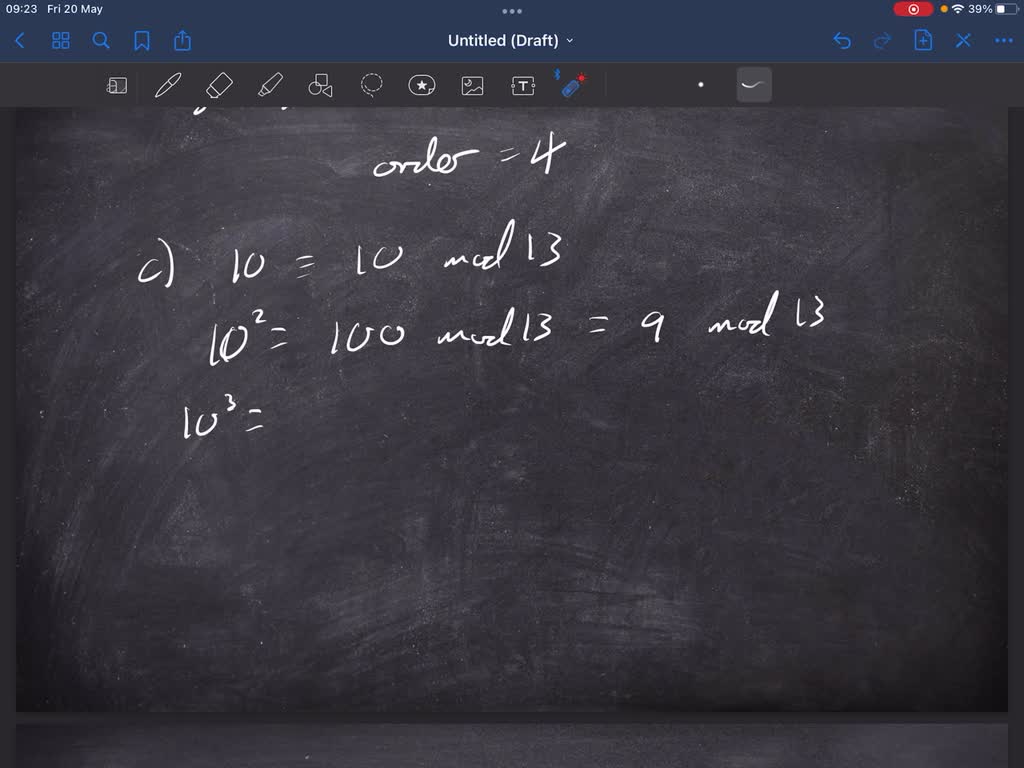 09:23 Fri 20 May 39%
Untitled (Draft)
order = 4
c) 10 ≡ 10 mod 13
10² = 100 mod 13 = 9 mod 13
10³ =